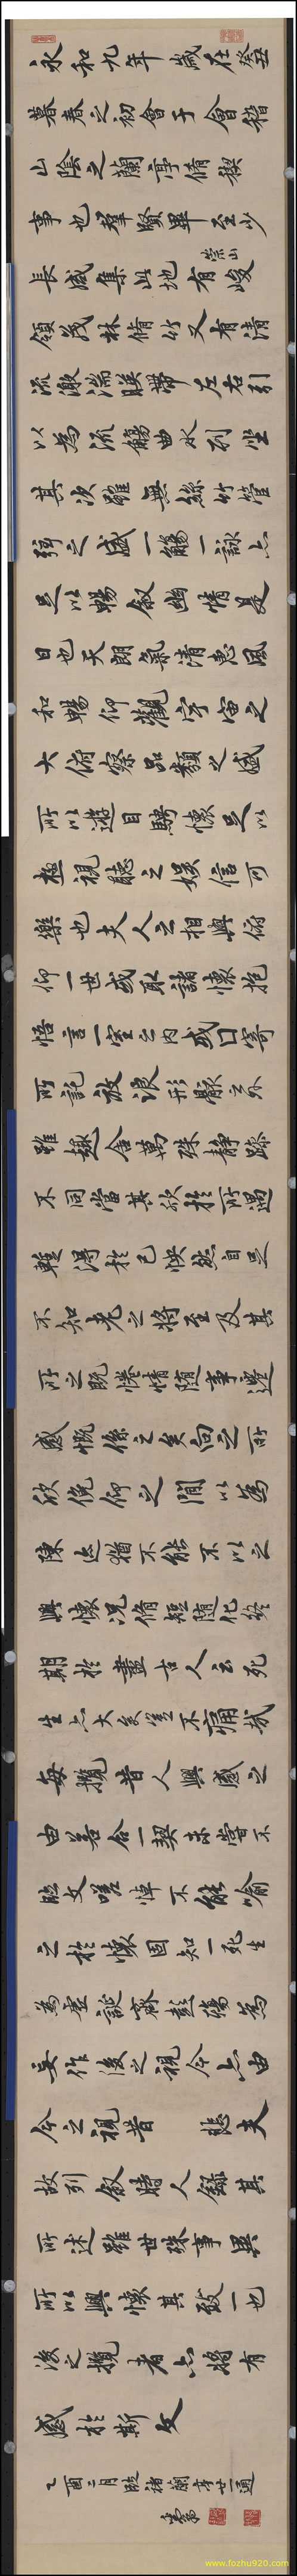 永和九年歲在癸丑
暮春之初會于會稽
山陰之蘭亭脩稧
事也羣賢畢至少
長咸集此地有崇山峻
領茂林脩竹又有清
流激湍暎帶左右引
以為流觴曲水列坐
其次雖無絲竹管
弦之盛一觴一詠亦
足以暢敘幽情是
日也天朗氣清惠風
和暢仰觀宇宙之
大俯察品類之盛
所以遊目騁懷足以
極視聽之娛信可
樂也夫人之相與俯
仰一世或取諸懷抱
悟言一室之內或因寄
所託放浪形骸之外
雖趣舍萬殊靜躁
不同當其欣於所遇
暫得於己怏然自足
不知老之將至及其
所之既惓情随事遷
感慨係之矣向之所
欣俛仰之閒以為
陳迹猶不能不以之
興懷況脩短随化終
期於盡古人云死
生亦大矣豈不痛哉
每攬昔人興感之
由若合一契未嘗不
臨文嗟悼不能喻
之於懷固知一死生
為虛誕齊彭殤為
妄作後之視今亦由
今之視昔 悲夫
故列敘時人錄其
所述雖世殊事異
所以興懷其致一也
後之攬者亦將有
感於斯文
乙酉二月臨褚蘭亭廿一通
www.fozhu920.com